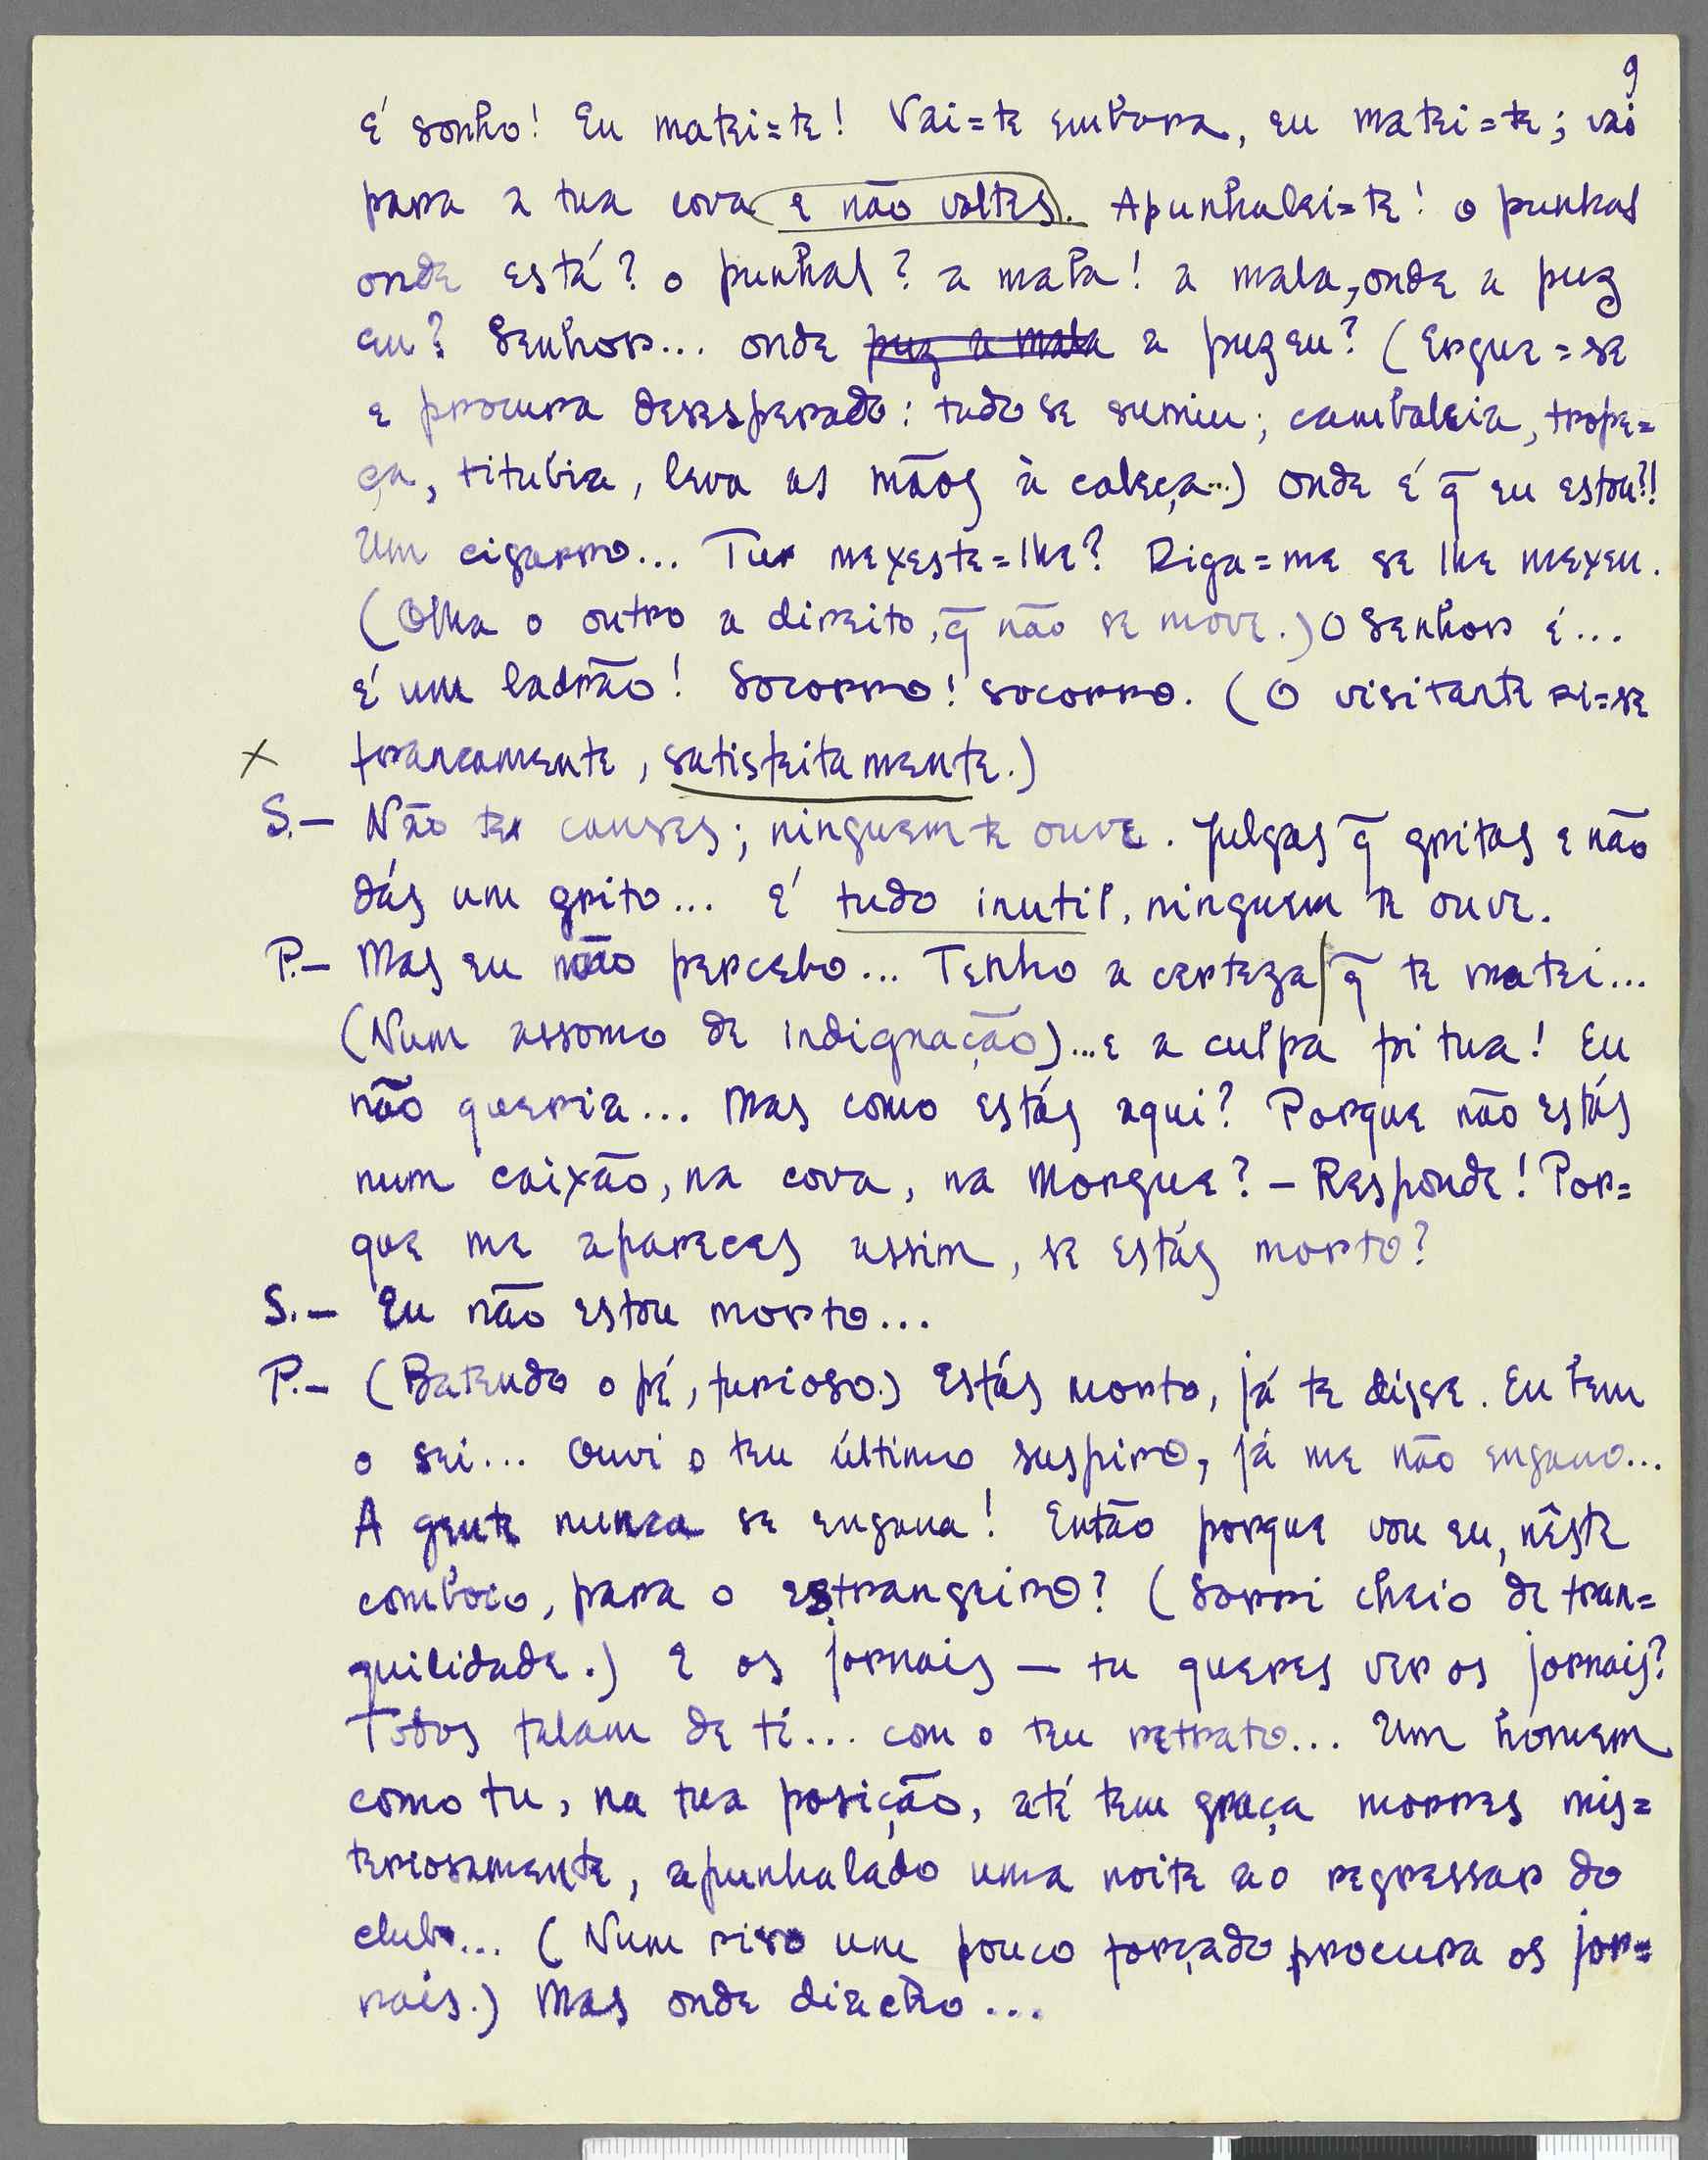 9
é sonho! Eu matei=te! Vai=te embora, eu matei=te; vai
para a tua cova e não voltes. Apunhalei=te! o punhal
onde está? o punhal? a mala! a mala, onde a puz
eu? Senhor... onde puz a mala a puz eu? (Ergue=se
e procura desesperado: tudo se sumiu; cambaleia, trope=
ça, titubia, leva as mãos à cabeça...) Onde é q̃ eu estou?!
Um cigarro... Tu mexeste=lhe? Diga=me se lhe mexeu.
(Olha o outro a direito, q̃ não se move.) O Senhor é...
É um ladrão! Socorro! socorro. (O visitante ri=se
francamente, satisfeitamente.)
S.— Não te canses; ninguem te ouve. Julgas q̃ gritas e não
dás um grito... É tudo inutil, ninguem te ouve.
P.— Mas eu não percebo... Tenho a certeza q̃ te matei...
(Num assomo de indignação)... e a culpa foi tua! Eu
não queria... Mas como estás aqui? Porque não estás
num caixão, na cova, na Morgue? — Responde! Por=
que me apareces assim, se estás morto?
S.— Eu não estou morto...
P.— (Batendo o pé, furioso.) Estás morto, já te disse. Eu bem
o sei... Ouvi o teu último suspiro, já me não engano...
A gente nunca se engana! Então porque vou eu, nêste
comboio, para o estrangeiro? (Sorri cheio de tran=
quilidade.) E os jornais — tu queres ver os jornais?
Todos falam de ti... com o teu retrato... Um homem
como tu, na tua posição, até tem graça morres mis=
teriosamente, apunhalado uma noite ao regressar do
club... (Num riso um pouco forçado procura os jor=
nais.) Mas onde diacho...